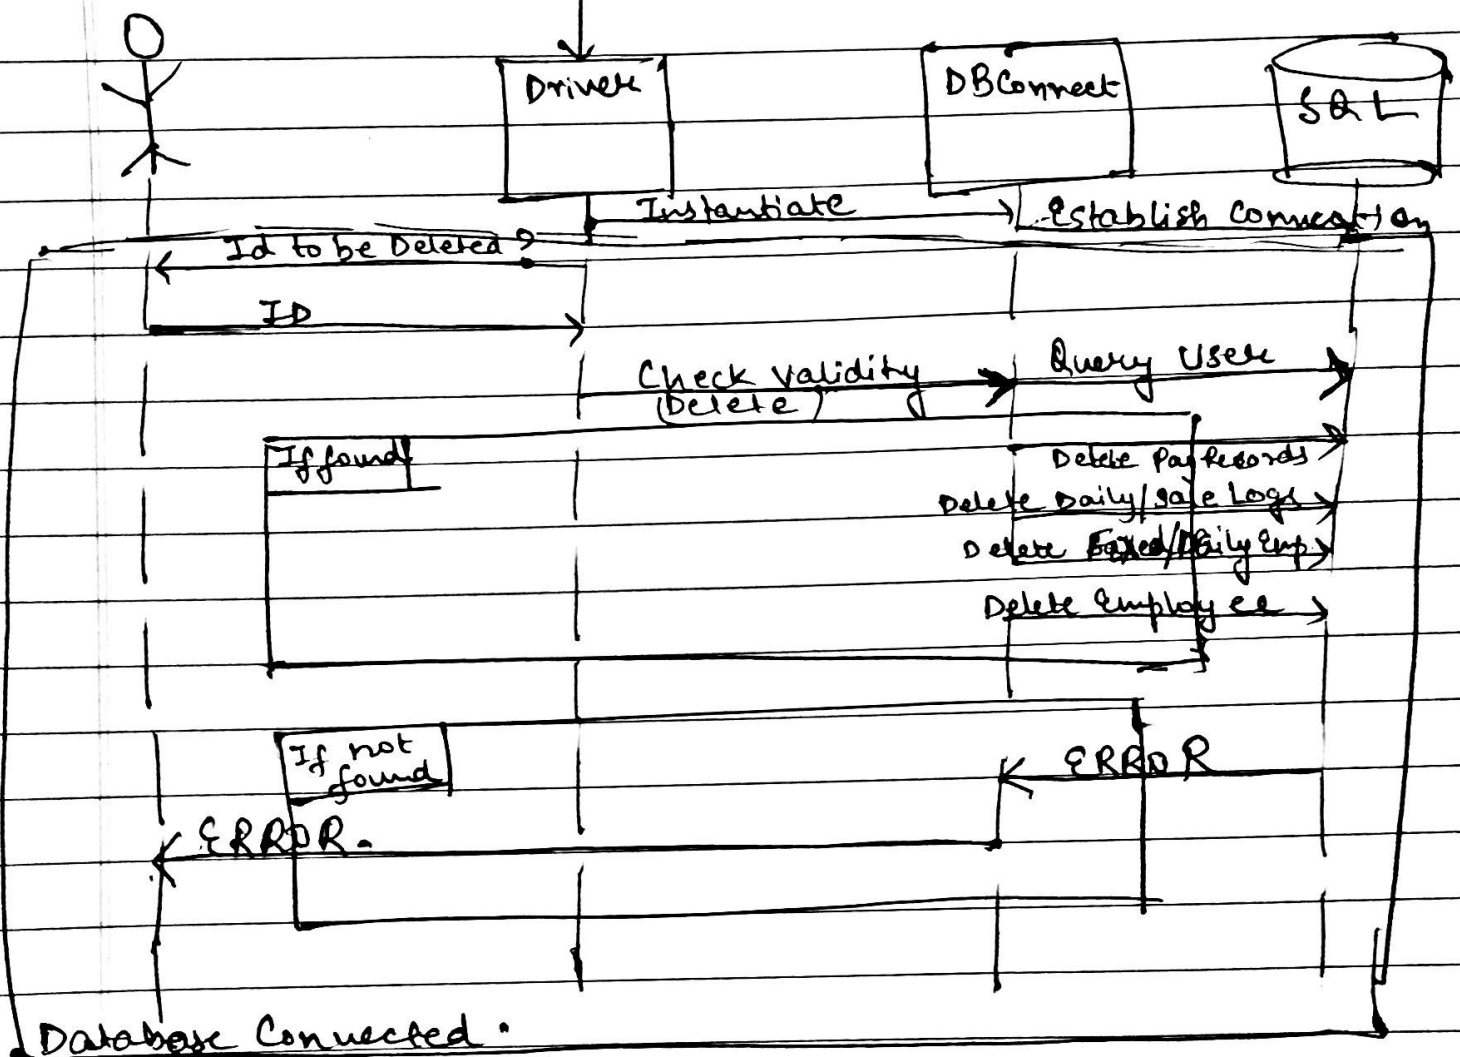 Driver
DBConnect
SQL
Instantiate
Establish Connection
Id to be Deleted ?
ID
Check Validity
(Delete)
Query User
If found
Delete Pay Records
Delete Daily/Sale Logs
Delete /Daily Emp
Delete Employee
If not
found
ERROR
ERROR.
Database Connected.